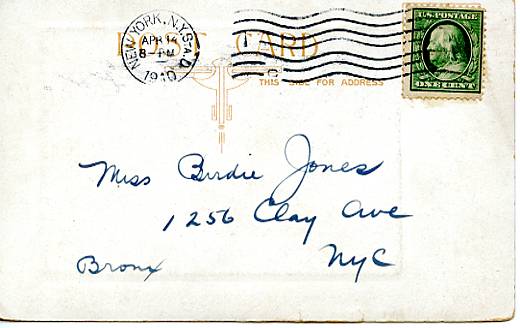 NEW YORK, N.Y. STA. O
APR 14
8 - PM
1910
U.S. POSTAGE
ONE CENT
POST CARD
THIS SIDE FOR ADDRESS
Miss Birdie Jones
1256 Clay Ave
Bronx NYC